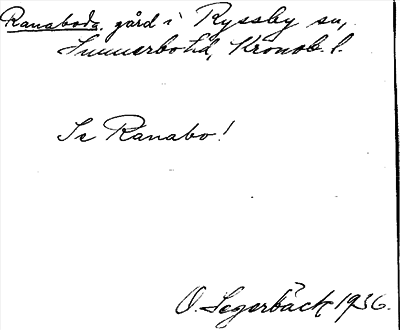 Ranaboda, gård i Ryssby sn,
Sunnerbo hd, Kronob. l.
Se Ranabo!
O. Segerbäck 1936.